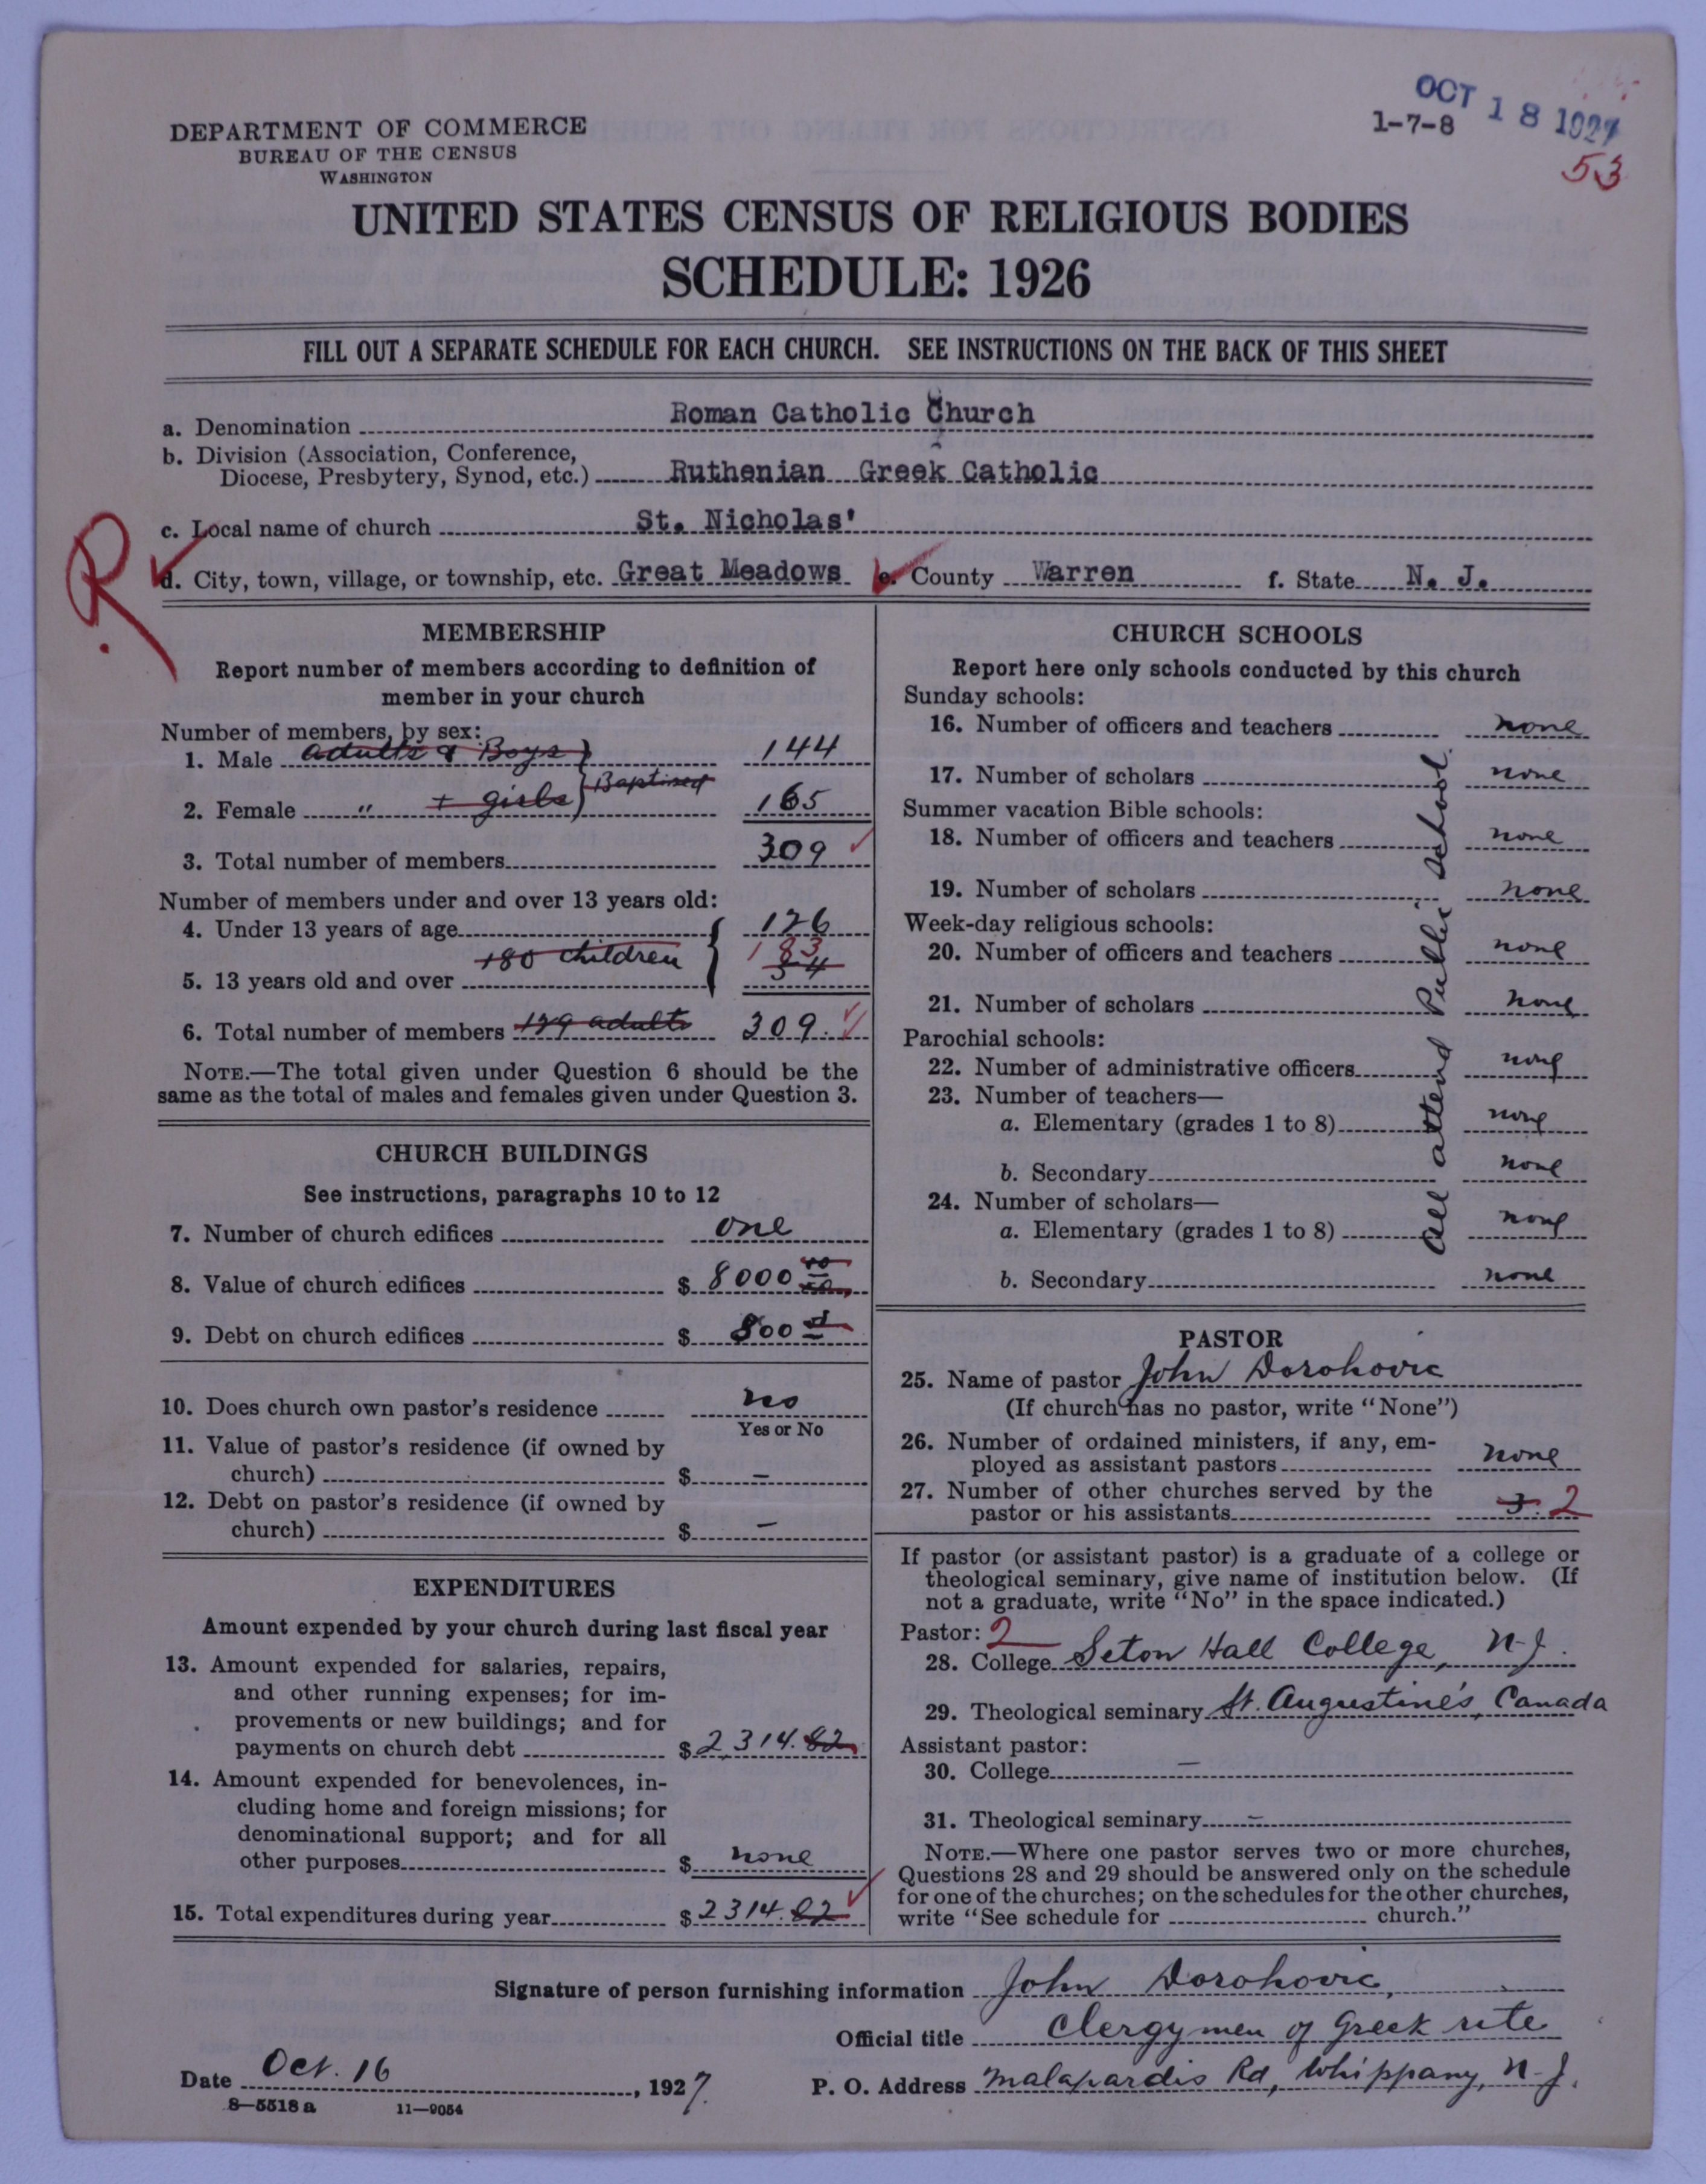 OCT 18 1927
1-7-8
53
DEPARTMENT OF COMMERCE
BUREAU OF THE CENSUS
WASHINGTON
UNITED STATES CENSUS OF RELIGIOUS BODIES
SCHEDULE: 1926
FILL OUT A SEPARATE SCHEDULE FOR EACH CHURCH. SEE INSTRUCTIONS ON THE BACK OF THIS SHEET
a. Denomination Roman Catholic Church
b. Division (Association, Conference,
Diocese, Presbytery, Synod, etc.) Ruthenian Greek Catholic
c. Local name of church St. Nicholas'
R
d. City, town, village, or township, etc. Great Meadows e. County Warren f. State N. J.
MEMBERSHIP
Report number of members according to definition of
member in your church
Number of members, by sex:
1. Male adults & Boys } 144
2. Female " + girls } Baptised 165
3. Total number of members 309
Number of members under and over 13 years old:
4. Under 13 years of age 126
180 children { 183
5. 13 years old and over 54
6. Total number of members 129 adults 309.
NOTE.—The total given under Question 6 should be the
same as the total of males and females given under Question 3.
CHURCH BUILDINGS
See instructions, paragraphs 10 to 12
7. Number of church edifices one
8. Value of church edifices $ 8000
9. Debt on church edifices $ 800
10. Does church own pastor's residence no
Yes or No
11. Value of pastor's residence (if owned by
church) $ –
12. Debt on pastor's residence (if owned by
church) $ –
EXPENDITURES
Amount expended by your church during last fiscal year
13. Amount expended for salaries, repairs,
and other running expenses; for im-
provements or new buildings; and for
payments on church debt $ 2314.82
14. Amount expended for benevolences, in-
cluding home and foreign missions; for
denominational support; and for all
other purposes $ none
15. Total expenditures during year $ 2314.82
CHURCH SCHOOLS
Report here only schools conducted by this church
Sunday schools:
16. Number of officers and teachers none
17. Number of scholars none
Summer vacation Bible schools:
18. Number of officers and teachers none
19. Number of scholars none
Week-day religious schools:
20. Number of officers and teachers none
21. Number of scholars none
Parochial schools:
22. Number of administrative officers none
23. Number of teachers—
a. Elementary (grades 1 to 8) none
b. Secondary none
24. Number of scholars—
a. Elementary (grades 1 to 8) none
b. Secondary none
All attend Public School.
PASTOR
25. Name of pastor John Dorohovic
(If church has no pastor, write "None")
26. Number of ordained ministers, if any, em-
ployed as assistant pastors none
27. Number of other churches served by the
pastor or his assistants 3. 2
If pastor (or assistant pastor) is a graduate of a college or
theological seminary, give name of institution below. (If
not a graduate, write "No" in the space indicated.)
Pastor: 2
28. College Seton Hall College, N-J.
29. Theological seminary St. Augustine's, Canada
Assistant pastor:
30. College –
31. Theological seminary –
NOTE.—Where one pastor serves two or more churches,
Questions 28 and 29 should be answered only on the schedule
for one of the churches; on the schedules for the other churches,
write "See schedule for church."
Signature of person furnishing information John Dorohovic,
Official title Clergymen of Greek rite
Date Oct. 16, 1927. P. O. Address Malapardis Rd, Whippany, N-J.
8—5518 a 11—9054